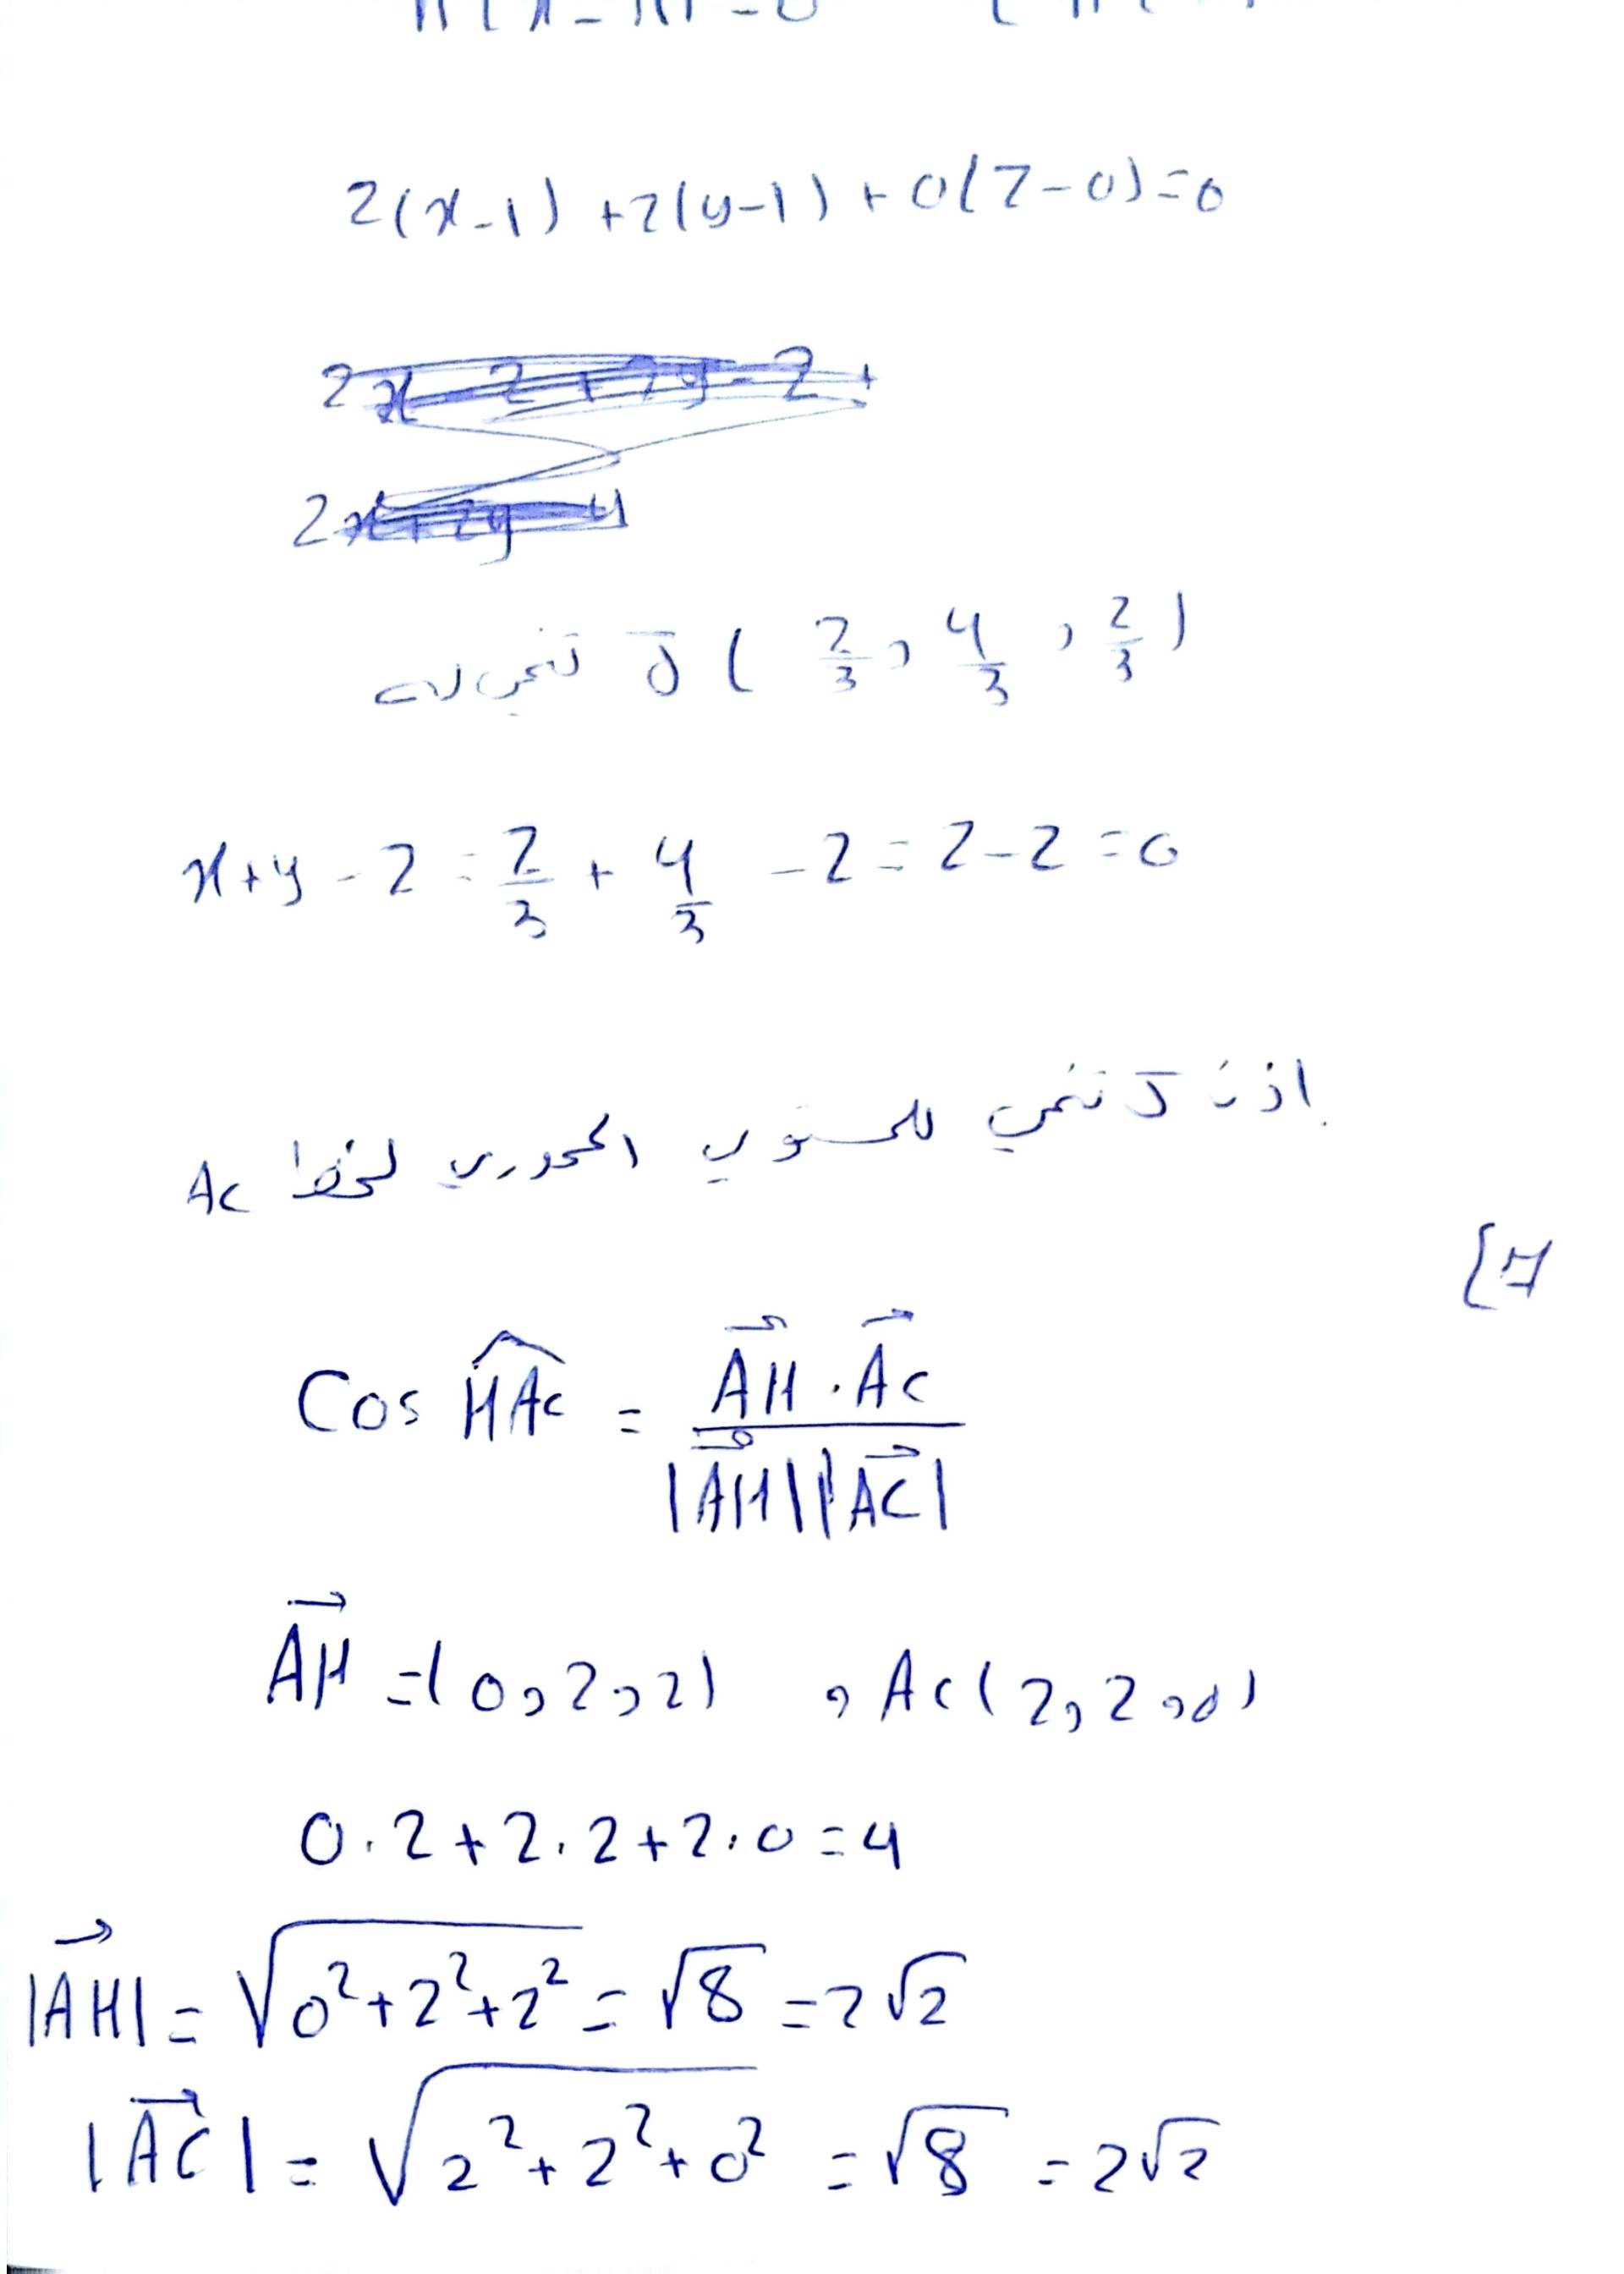 2(x-1) +2(y-1) + 0(z-0)=0
2x-2+2y-2+
2x+2y-4
( 2/3 , 4/3 , 2/3 ) J تنتمي له
x+y-2 = 2/3 + 4/3 -2 = 2-2 =0
اذن J تنتمي للمستوي المحوري لخط AC
Cos HAC = AH . AC / |AH||AC|
AH =(0,2,2) , AC(2,2,0)
0.2+2.2+2.0=4
|AH| = √0²+2²+2² = √8 =2√2
|AC| = √2²+2²+0² =√8 = 2√2